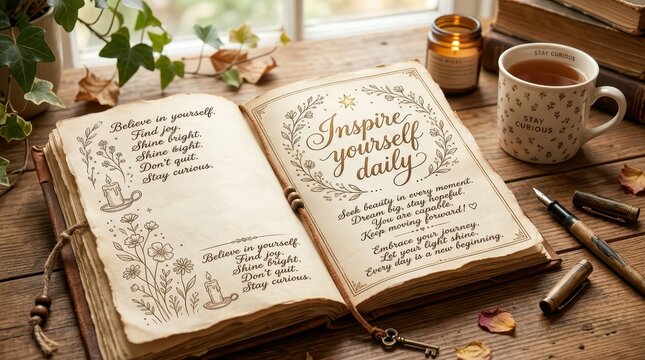 Believe in yourself.
Find joy.
Shine bright.
Shine bight.
Don't quit.
Stay curious.
Believe in yourself.
Find joy.
Shine bright.
Don't quit.
Stay curious.
Inspire
yourself
daily
Seek beauty in every moment.
Dream big, stay hopeful.
You are capable.
Keep moving forward!
Embrace your journey.
Let your light shine.
Every day is a new beginning.
STAY CURIOUS
STAY
CURIOUS